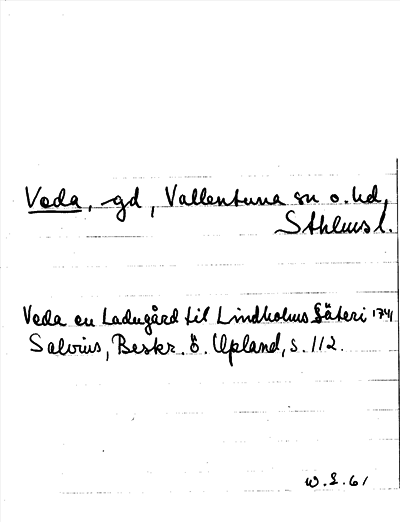 Veda, -gd, Vallentuna sn o. hd,
Sthlms l.
Veda en Ladugård til Lindholms Säteri 1741
Salvius, Beskr. ö. Upland, s. 112.
W. L. 61